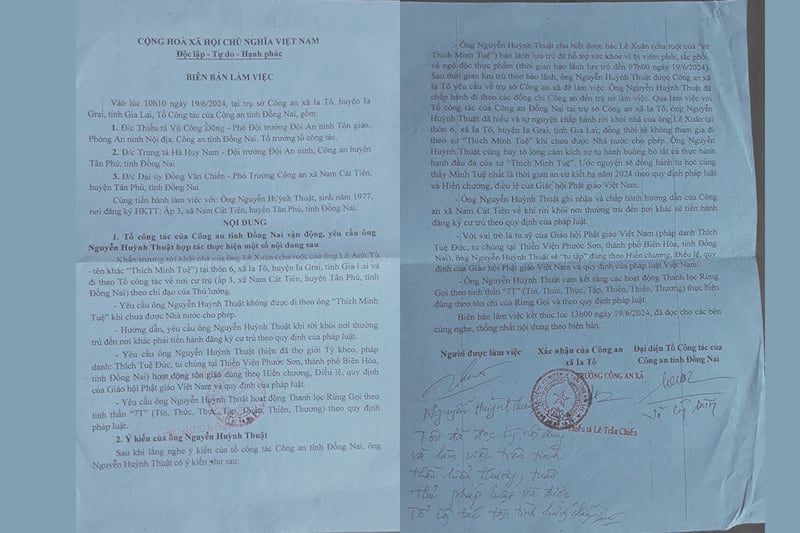 CỘNG HOÀ XÃ HỘI CHỦ NGHĨA VIỆT NAM
Độc lập - Tự do - Hạnh phúc
BIÊN BẢN LÀM VIỆC
Vào lúc 10h10 ngày 19/6/2024, tại trụ sở Công an xã Ia Tô, huyện Ia
Grai, tỉnh Gia Lai, Tổ Công tác của Công an tỉnh Đồng Nai, gồm:
1. Đ/c Thiếu tá Vũ Công Dũng - Phó Đội trưởng Đội An ninh Tôn giáo,
Phòng An ninh Nội địa, Công an tỉnh Đồng Nai. Tổ trưởng tổ công tác.
2. Đ/c Trung tá Hà Huy Nam - Đội trưởng Đội An ninh, Công an huyện
Tân Phú, tỉnh Đồng Nai.
3. Đ/c Đại úy Đồng Văn Chiến - Phó Trưởng Công an xã Nam Cát Tiên,
huyện Tân Phú, tỉnh Đồng Nai.
Cùng tiến hành làm việc với: Ông Nguyễn Huỳnh Thuật, sinh năm 1977,
nơi đăng ký HKTT: Ấp 3, xã Nam Cát Tiên, huyện Tân Phú, tỉnh Đồng Nai.
NỘI DUNG
1. Tổ công tác của Công an tỉnh Đồng Nai vận động, yêu cầu ông
Nguyễn Huỳnh Thuật hợp tác thực hiện một số nội dung sau
- Khẩn trương rời khỏi nhà của ông Lê Xuân (cha ruột của ông Lê Anh Tú
- tên khác "Thích Minh Tuệ") tại thôn 6, xã Ia Tô, huyện Ia Grai, tỉnh Gia Lai và
đi theo Tổ công tác về nơi cư trú (ấp 3, xã Nam Cát Tiên, huyện Tân Phú, tỉnh
Đồng Nai) theo chỉ đạo của Thủ tướng.
- Yêu cầu ông Nguyễn Huỳnh Thuật không được đi theo ông "Thích Minh
Tuệ" khi chưa được Nhà nước cho phép.
- Hướng dẫn, yêu cầu ông Nguyễn Huỳnh Thuật khi rời khỏi nơi thường
trú đến nơi khác phải tiến hành đăng ký cư trú theo quy định của pháp luật.
- Yêu cầu ông Nguyễn Huỳnh Thuật (hiện đã thọ giới Tỳ kheo, pháp
danh: Thích Tuệ Đức, tu chúng tại Thiền Viện Phước Sơn, thành phố Biên Hòa,
tỉnh Đồng Nai) hoạt động tôn giáo đúng theo Hiến chương, Điều lệ, quy định
của Giáo hội Phật giáo Việt Nam và quy định của pháp luật.
- Yêu cầu ông Nguyễn Huỳnh Thuật hoạt động Thanh lọc Rừng Gọi theo
tinh thần "7T" (Tín, Thức, Thực, Tập, Thiền, Thiện, Thương) theo quy định
pháp luật.
2. Ý kiến của ông Nguyễn Huỳnh Thuật
Sau khi lắng nghe ý kiến của tổ công tác Công an tỉnh Đồng Nai, ông
Nguyễn Huỳnh Thuật có ý kiến như sau:
- Ông Nguyễn Huỳnh Thuật cho biết được bác Lê Xuân (cha ruột của "sư
Thích Minh Tuệ") bảo lãnh lưu trú để hỗ trợ sức khỏe vì bị viêm phổi, tắc phổi,
và ngộ độc thực phẩm (thời gian bảo lãnh lưu trú đến 07h00 ngày 19/6/2024).
Sau thời gian lưu trú theo bảo lãnh, ông Nguyễn Huỳnh Thuật được Công an xã
Ia Tô yêu cầu về trụ sở Công an xã để làm việc. Ông Nguyễn Huỳnh Thuật đã
chấp hành đi theo các đồng chí Công an đến trụ sở làm việc. Qua làm việc với
Tổ công tác của Công an Đồng Nai tại trụ sở Công an xã Ia Tô, ông Nguyễn
Huỳnh Thuật đã hiểu và tự nguyện chấp hành rời khỏi nhà của ông Lê Xuân tại
thôn 6, xã Ia Tô, huyện Ia Grai, tỉnh Gia Lai; đồng thời sẽ không tham gia đi
theo sư "Thích Minh Tuệ" khi chưa được Nhà nước cho phép. Ông Nguyễn
Huỳnh Thuật cũng bày tỏ lòng cảm kích sự tu hành buông bỏ tất cả thực hành
hạnh đầu đà của sư "Thích Minh Tuệ". Ước nguyện sẽ đồng hành tu học cùng
thầy Minh Tuệ nhất là thời gian an cư kiết hạ năm 2024 theo quy định pháp luật
và Hiến chương, điều lệ của Giáo hội Phật giáo Việt Nam.
- Ông Nguyễn Huỳnh Thuật ghi nhận và chấp hành hướng dẫn của Công
an xã Nam Cát Tiên về khi rời khỏi nơi thường trú đến nơi khác sẽ tiến hành
đăng ký cư trú theo quy định của pháp luật.
- Với vai trò là tu sỹ của Giáo hội Phật giáo Việt Nam (pháp danh Thích
Tuệ Đức, tu chúng tại Thiền Viện Phước Sơn, thành phố Biên Hòa, tỉnh Đồng
Nai), ông Nguyễn Huỳnh Thuật sẽ "tu tập" đúng theo Hiến Chương, Điều Lệ, quy
định của Giáo hội Phật giáo Việt Nam và quy định của pháp luật Việt Nam.
- Ông Nguyễn Huỳnh Thuật cam kết rằng các hoạt động Thanh lọc Rừng
Gọi theo tinh thần "7T" (Tín, Thức, Thực, Tập, Thiền, Thiện, Thương) thực hiện
đúng theo tôn chỉ của Rừng Gọi và theo quy định của pháp luật.
Biên bản làm việc kết thúc lúc 13h00 ngày 19/6/2024, đã đọc cho các bên
cùng nghe, thống nhất nội dung theo biên bản.
Người được làm việc
Xác nhận của Công an
xã Ia Tô
Đại diện Tổ Công tác của
Công an tỉnh Đồng Nai
TRƯỞNG CÔNG AN XÃ
Thiếu tá Lê Trần Chiến
Vũ Công Dũng
Nguyễn Huỳnh Thuật
Tôi đã đọc kỹ nội dung
và làm việc trên tinh
thần hiểu thương, tuân
thủ pháp luật và được
Tổ công tác tận tình hướng dẫn